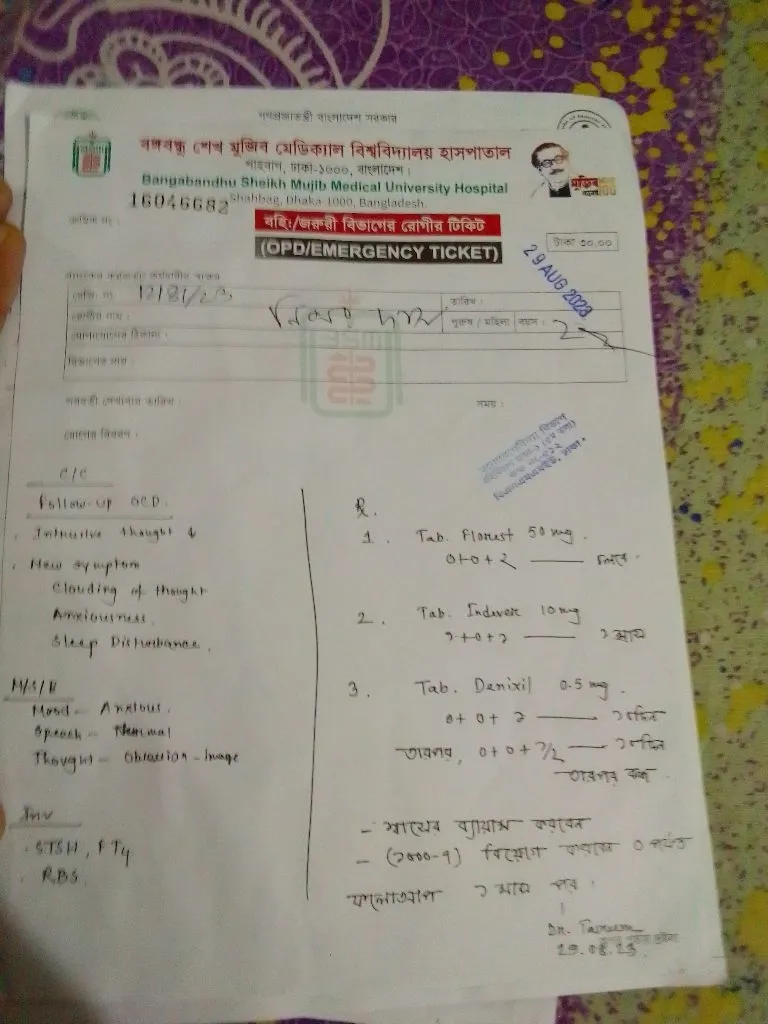 গণপ্রজাতন্ত্রী বাংলাদেশ সরকার
বঙ্গবন্ধু শেখ মুজিব মেডিক্যাল বিশ্ববিদ্যালয় হাসপাতাল
শাহবাগ, ঢাকা-১০০০, বাংলাদেশ।
Bangabandhu Sheikh Mujib Medical University Hospital
Shahbag, Dhaka-1000, Bangladesh.
16046682
বহিঃ/জরুরী বিভাগের রোগীর টিকিট
(OPD/EMERGENCY TICKET)
টাকা ৩০.০০
29 AUG 2023
রেজি. নং
তারিখ :
রোগীর নাম :
পুরুষ / মহিলা
বয়স :
বিভাগের নাম :
পরবর্তী দেখানোর তারিখ :
সময় :
রোগের বিবরণ :
C/C
Follow-up OCD.
Intrusive thought ↓
New symptom
Clouding of thought
Anxiousness.
Sleep Disturbance.
M/S/E
Mood - Anxious.
Speech - Normal
Thought - Obsession - Image
Inv
STSH, FT4
RBS.
Rx.
1. Tab. 50 mg.
0+0+২ —
2. Tab. Indever 10 mg
১+০+১ — ১ মাস
3. Tab. Denixil 0.5 mg.
0+0+১ — ১৫দিন
তারপর, 0+0+১/২ — ১৫দিন
তারপর বন্ধ.
- শ্বাসের ব্যায়াম করবেন
- (১০০০-৭) বিয়োগ করবেন ০ পর্যন্ত
ফলোআপ ১ মাস পর।
29.08.23